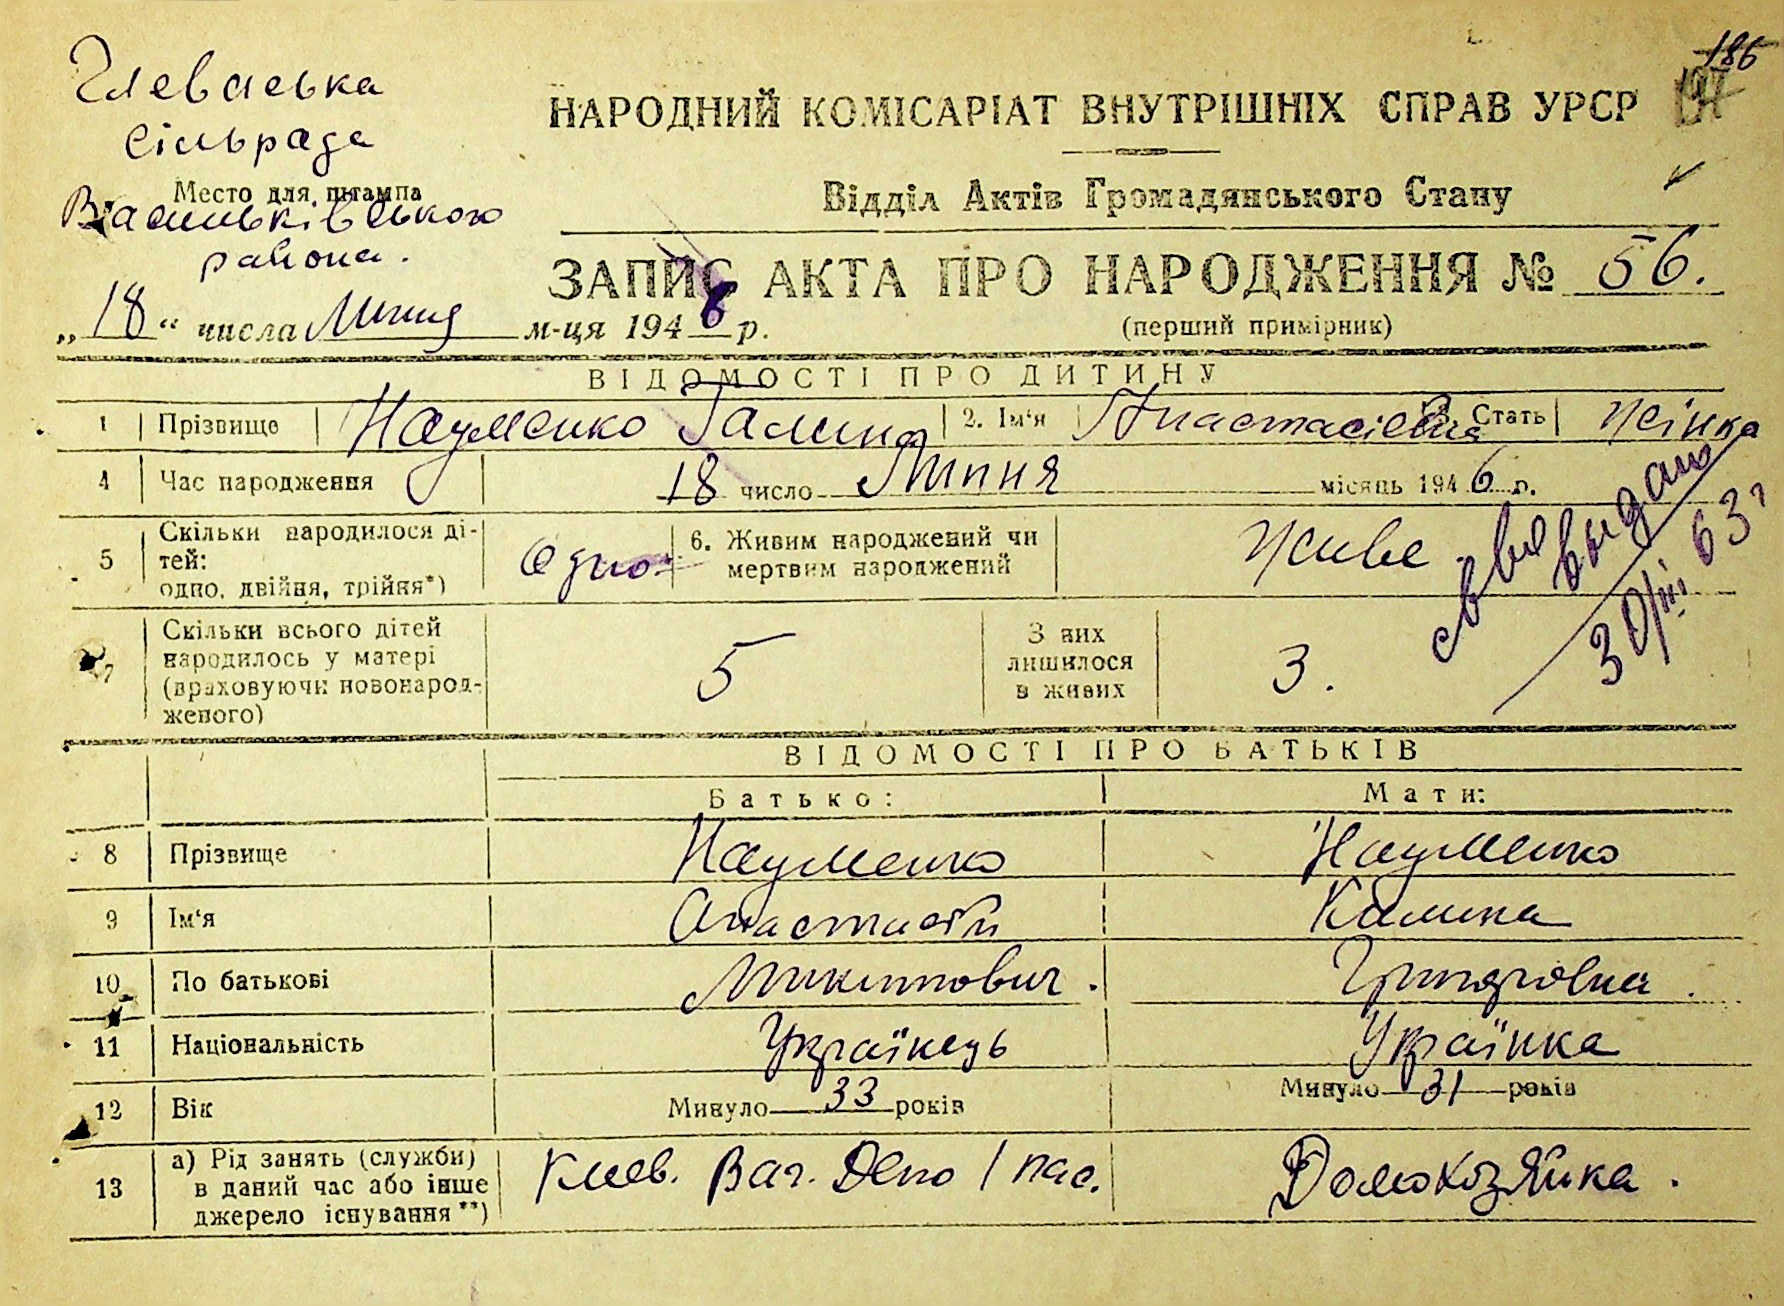 186
Глеваська
сільрада
Место для штампа
Васильківського
района.
НАРОДНИЙ КОМІСАРІАТ ВНУТРІШНІХ СПРАВ УРСР
Відділ Актів Громадянського Стану
ЗАПИС АКТА ПРО НАРОДЖЕННЯ № 56.
„18“ числа Липня м-ця 1946 р.
(перший примірник)
ВІДОМОСТІ ПРО ДИТИНУ
1 Прізвище Науменко Галина 2. Ім'я Анастасієвна 3. Стать жінка
4 Час народження 18 число Липня місяць 1946 р.
5 Скільки народилося ді-
тей:
одно, двійня, трійня*) одно. 6. Живим народжений чи
мертвим народжений живе
7 Скільки всього дітей
народилось у матері
(враховуючи новонарод-
женого) 5 З них
лишилося
в живих 3.
свво выдано
30/III 63 г
ВІДОМОСТІ ПРО БАТЬКІВ
Батько: Мати:
8 Прізвище Науменко Науменко
9 Ім'я Анастасій Калина
10 По батькові Микитович. Григоровна.
11 Національність Українець Українка
12 Вік Минуло 33 років Минуло 31 років
13 а) Рід занять (служби)
в даний час або інше
джерело існування**) Киев. Ваг. Депо / пас. Домохозяйка.